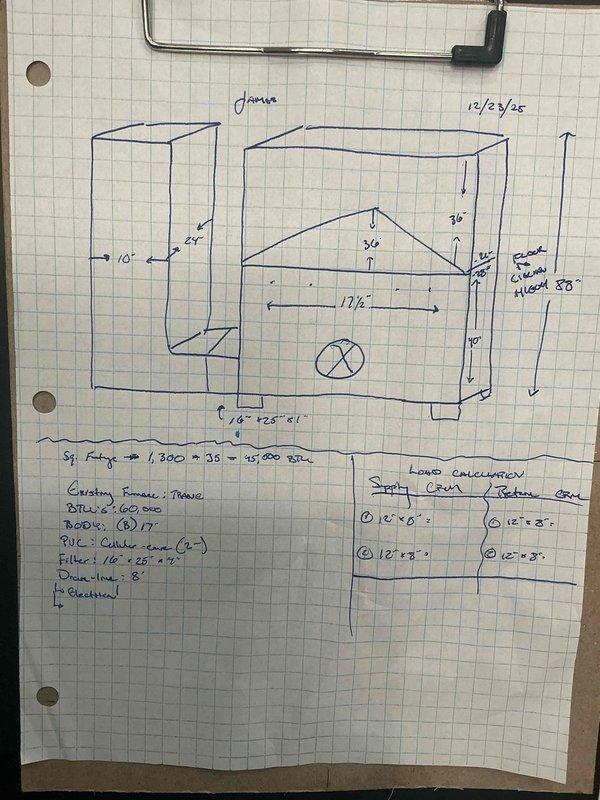 James
12/23/25
10"
24"
36"
36"
17 1/2"
40"
Floor
to
88"
16" x 25" x 1"
Sq. Footage → 1,300 x 35 = 45,000 BTU
Existing Furnace: TRANE
BTU's: 60,000
BODY: (B) 17"
PVC: Cellular-core (2")
Filter: 16" x 25" x 4"
Drain-line: 8'
Electrical
LOAD CALCULATION
Supply CFM
Return CFM
① 12" x 8" =
① 12" x 8" =
② 12" x 8" =
② 12" x 8" =